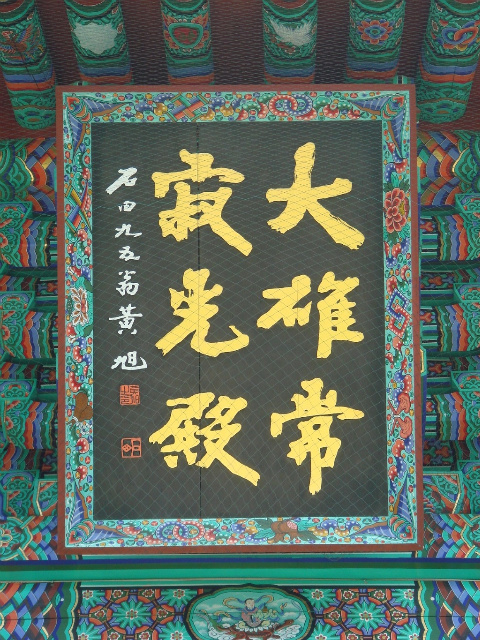 大雄常
寂光殿
石田九五翁黃旭